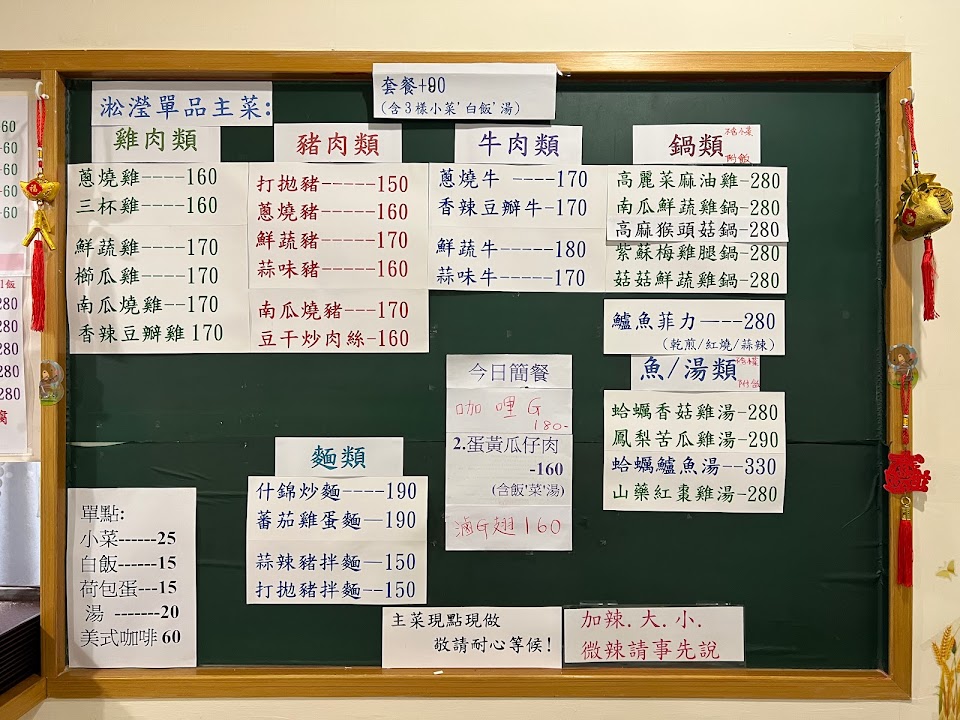 套餐+90
(含3樣小菜'白飯'湯)
淞瀅單品主菜:
雞肉類
蔥燒雞----160
三杯雞----160
鮮蔬雞----170
櫛瓜雞----170
南瓜燒雞--170
香辣豆瓣雞 170
豬肉類
打拋豬-----150
蔥燒豬-----160
鮮蔬豬-----170
蒜味豬-----160
南瓜燒豬---170
豆干炒肉絲-160
牛肉類
蔥燒牛 ----170
香辣豆瓣牛-170
鮮蔬牛----180
蒜味牛----170
鍋類
附飯
高麗菜麻油雞-280
南瓜鮮蔬雞鍋-280
高麻猴頭菇鍋-280
紫蘇梅雞腿鍋-280
菇菇鮮蔬雞鍋-280
鱸魚菲力----280
(乾煎/紅燒/蒜辣)
魚/湯類
附飯
蛤蠣香菇雞湯-280
鳳梨苦瓜雞湯-290
蛤蠣鱸魚湯--330
山藥紅棗雞湯-280
今日簡餐
咖哩G
180-
2.蛋黃瓜仔肉
-160
(含飯'菜'湯)
滷G翅160
麵類
什錦炒麵----190
蕃茄雞蛋麵—190
蒜辣豬拌麵—150
打拋豬拌麵—150
單點:
小菜------25
白飯------15
荷包蛋---15
湯 -------20
美式咖啡 60
主菜現點現做
敬請耐心等候!
加辣.大.小.
微辣請事先說
60
60
60
60
飯
280
280
280
280
280
腐
福